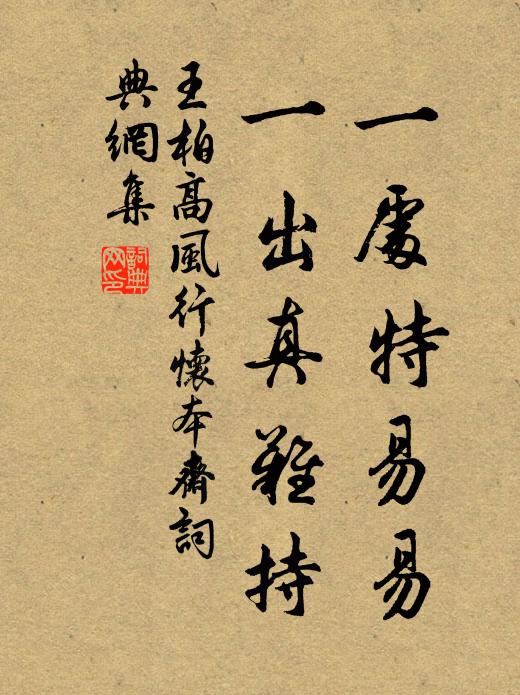 一處特易易
一出真難持
王柏高風行懷本齋詞
典網集
詞典
網印